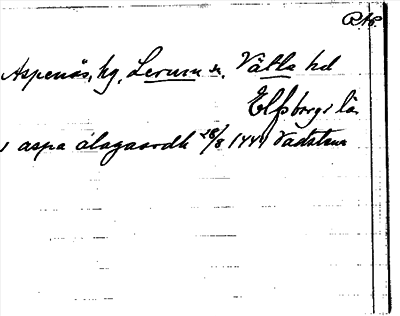 RAP.
Aspenäs, hg, Lerum sn, Vätle hd
Elfsborgs län
i aspa alagaardh 28/8 1441 Vadstena